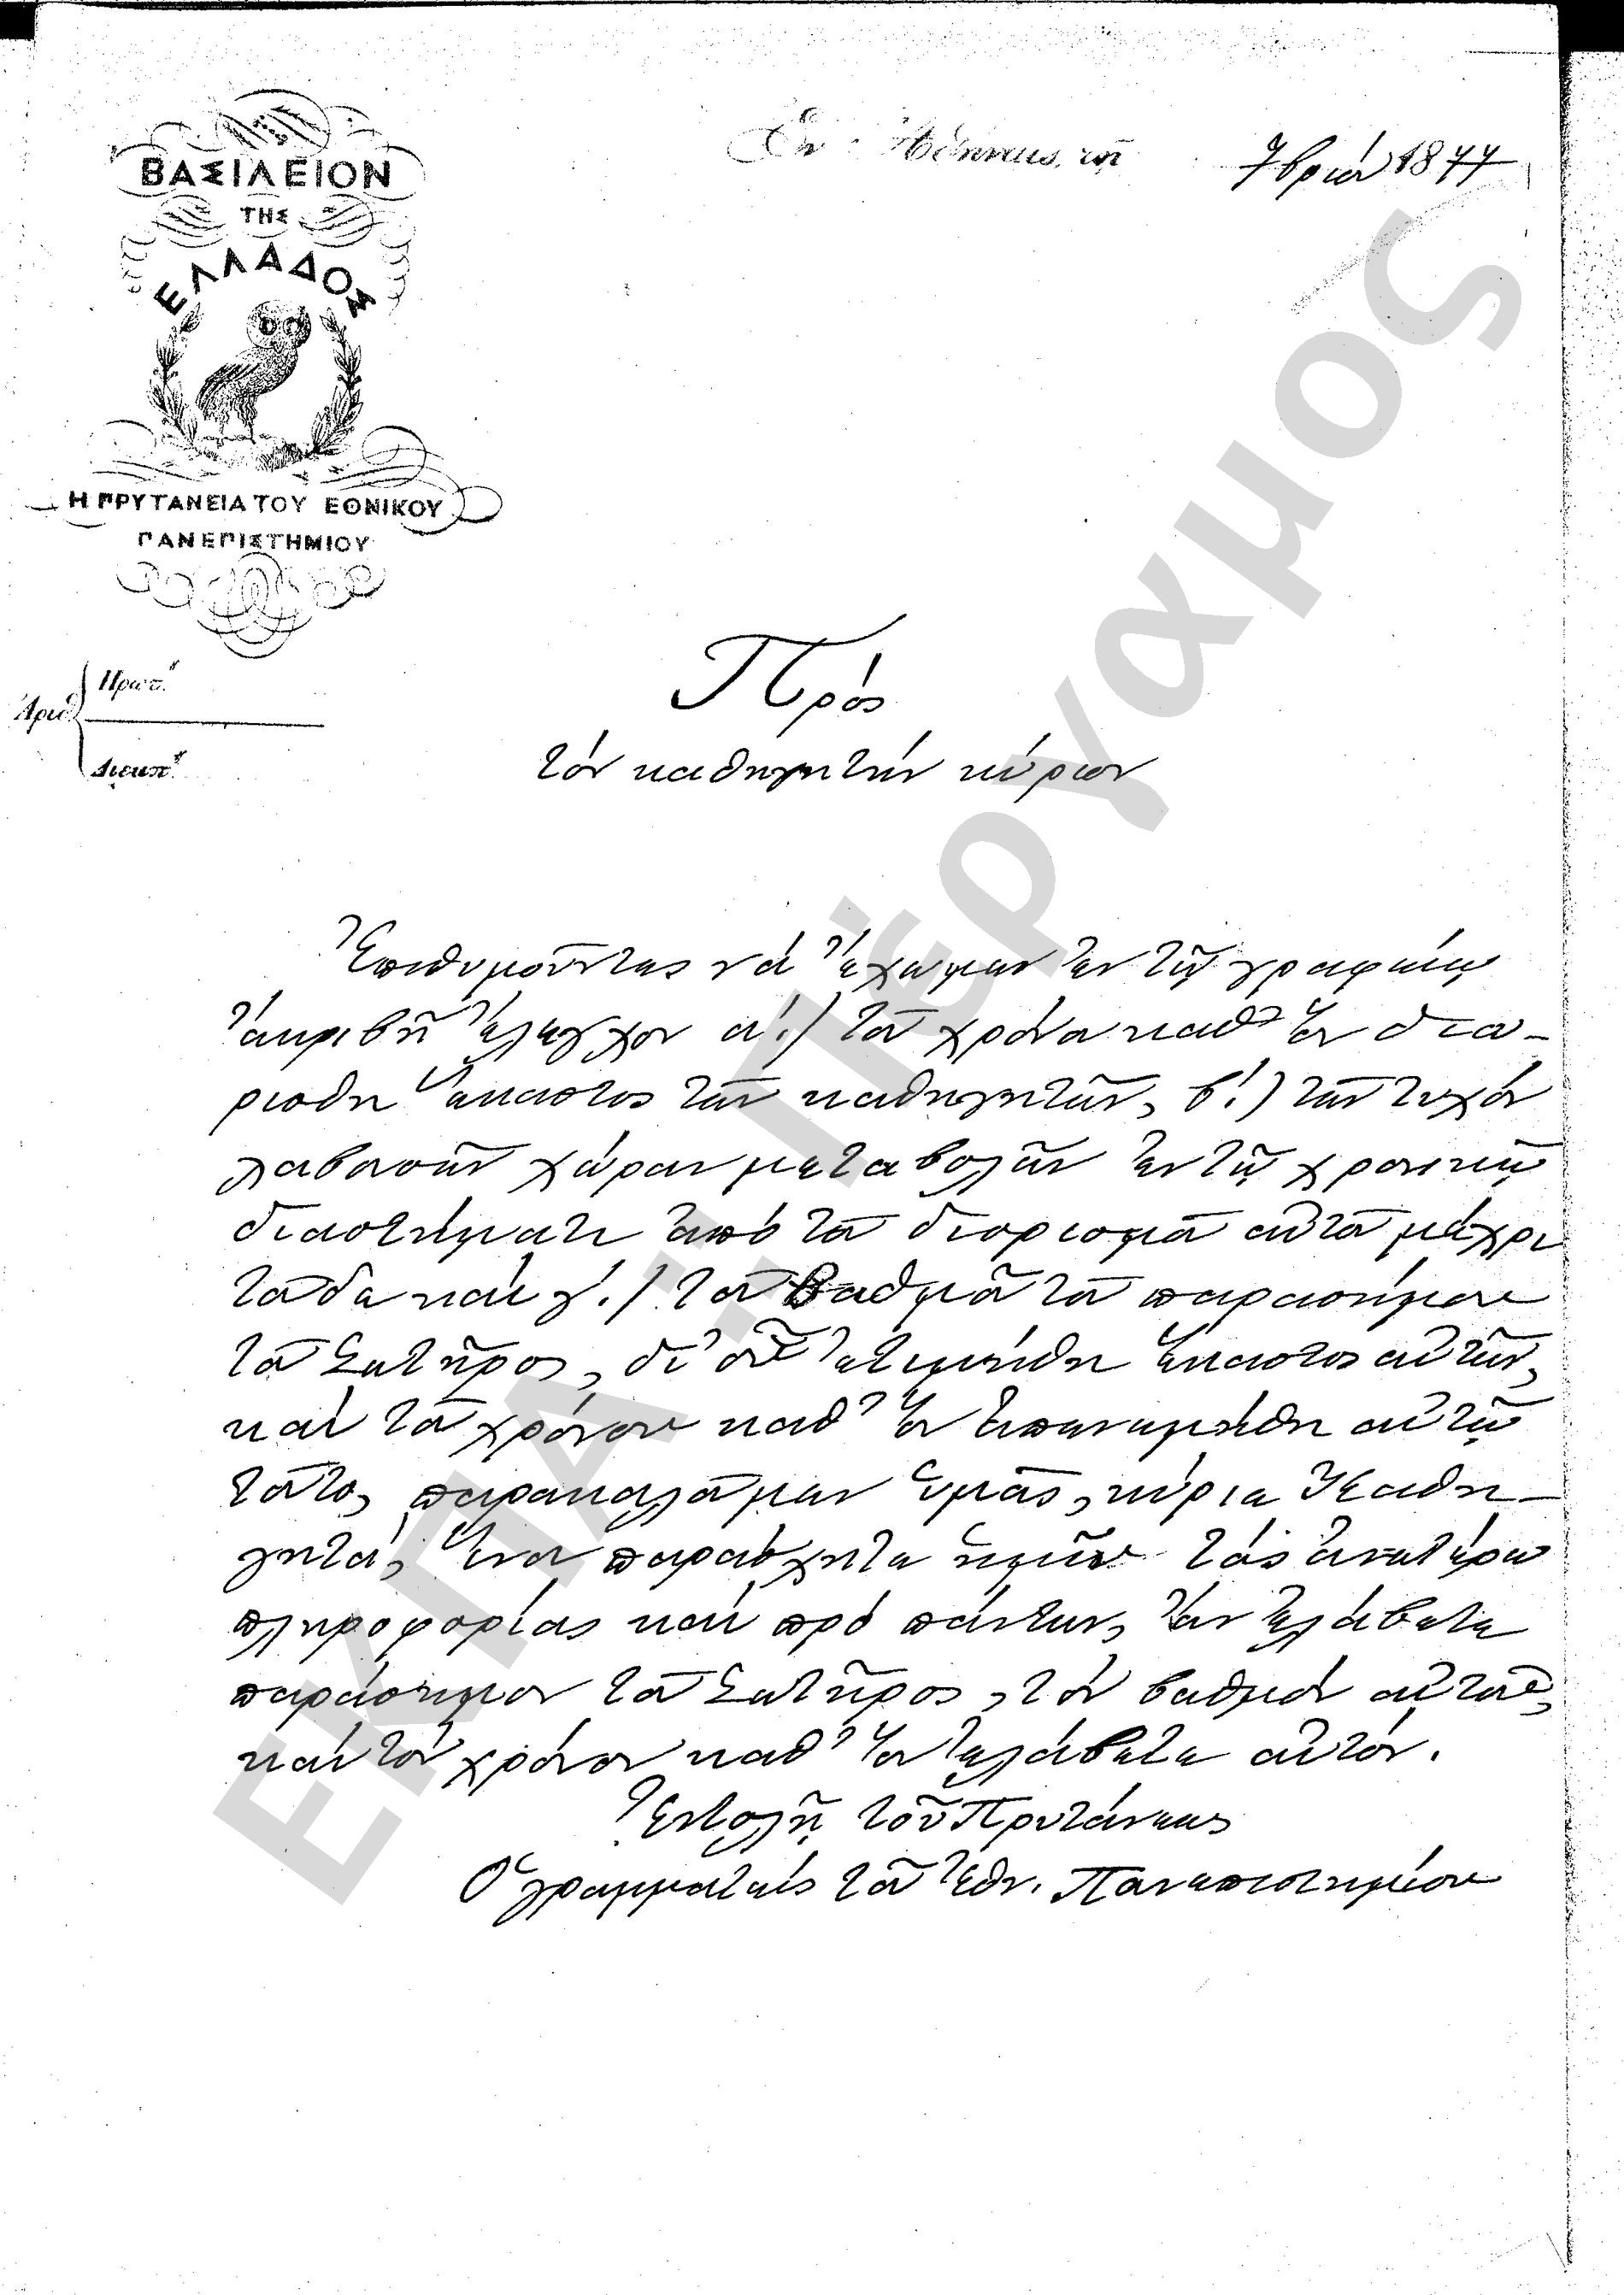 ΒΑΣΙΛΕΙΟΝ
ΤΗΣ
ΕΛΛΑΔΟΣ
Η ΠΡΥΤΑΝΕΙΑ ΤΟΥ ΕΘΝΙΚΟΥ
ΠΑΝΕΠΙΣΤΗΜΙΟΥ
Ἐν Ἀθήναις, τῇ 7βρίου 1877
Ἀριθ.
Πρωτ.
Διεκπ.
Πρός
τὸν καθηγητὴν κύριον
Ἐπιθυμοῦντες νὰ ἔχωμεν ἐν τῷ γραφείῳ
ἀκριβῆ ἔλεγχον α΄.) τοῦ χρόνου καθ' ὃν διω-
ρίσθη ἕκαστος τῶν καθηγητῶν, β΄.) τῶν τυχὸν
λαβουσῶν χώραν μεταβολῶν ἐν τῷ χρονικῷ
διαστήματι ἀπὸ τοῦ διορισμοῦ αὐτοῦ μέχρι
τοῦδε καὶ γ΄.) τοῦ βαθμοῦ τοῦ παρασήμου
τοῦ Σωτῆρος, δι' οὗ ἐτιμήθη ἕκαστος αὐτῶν,
καὶ τοῦ χρόνου καθ' ὃν ἀπενεμήθη αὐτῷ
τοῦτο, παρακαλοῦμεν ὑμᾶς, κύριε Καθη-
γητά, ἵνα παράσχητε ἡμῖν τὰς ἀνωτέρω
πληροφορίας καὶ πρὸ πάντων, ἂν ἐλάβετε
παράσημον τοῦ Σωτῆρος, τὸν βαθμὸν αὐτοῦ,
καὶ τὸν χρόνον καθ' ὃν ἐλάβετε αὐτόν.
Ἐντολῇ τοῦ Πρυτάνεως
Ὁ γραμματεὺς τοῦ Ἐθν. Πανεπιστημίου
ΕΚΠΑ - Πέργαμος